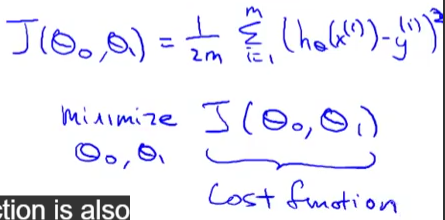 J(θ₀,θ₁) = 1/2m Σᵢ₌₁ᵐ (hθ(x⁽ⁱ⁾)-y⁽ⁱ⁾)²
minimize J(θ₀,θ₁)
θ₀,θ₁
Cost function
ction is also